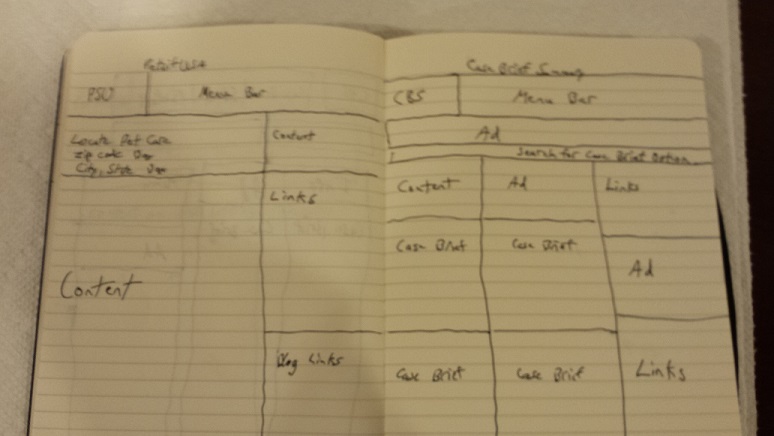 PSU
Menu Bar
Locate Pet Care
zip code
City, State
Content
Links
Content
Blog Links
Case Brief Summary
CBS
Menu Bar
Ad
Search for Case Brief Option
Content
Ad
Links
Case Brief
Case Brief
Ad
Case Brief
Case Brief
Links